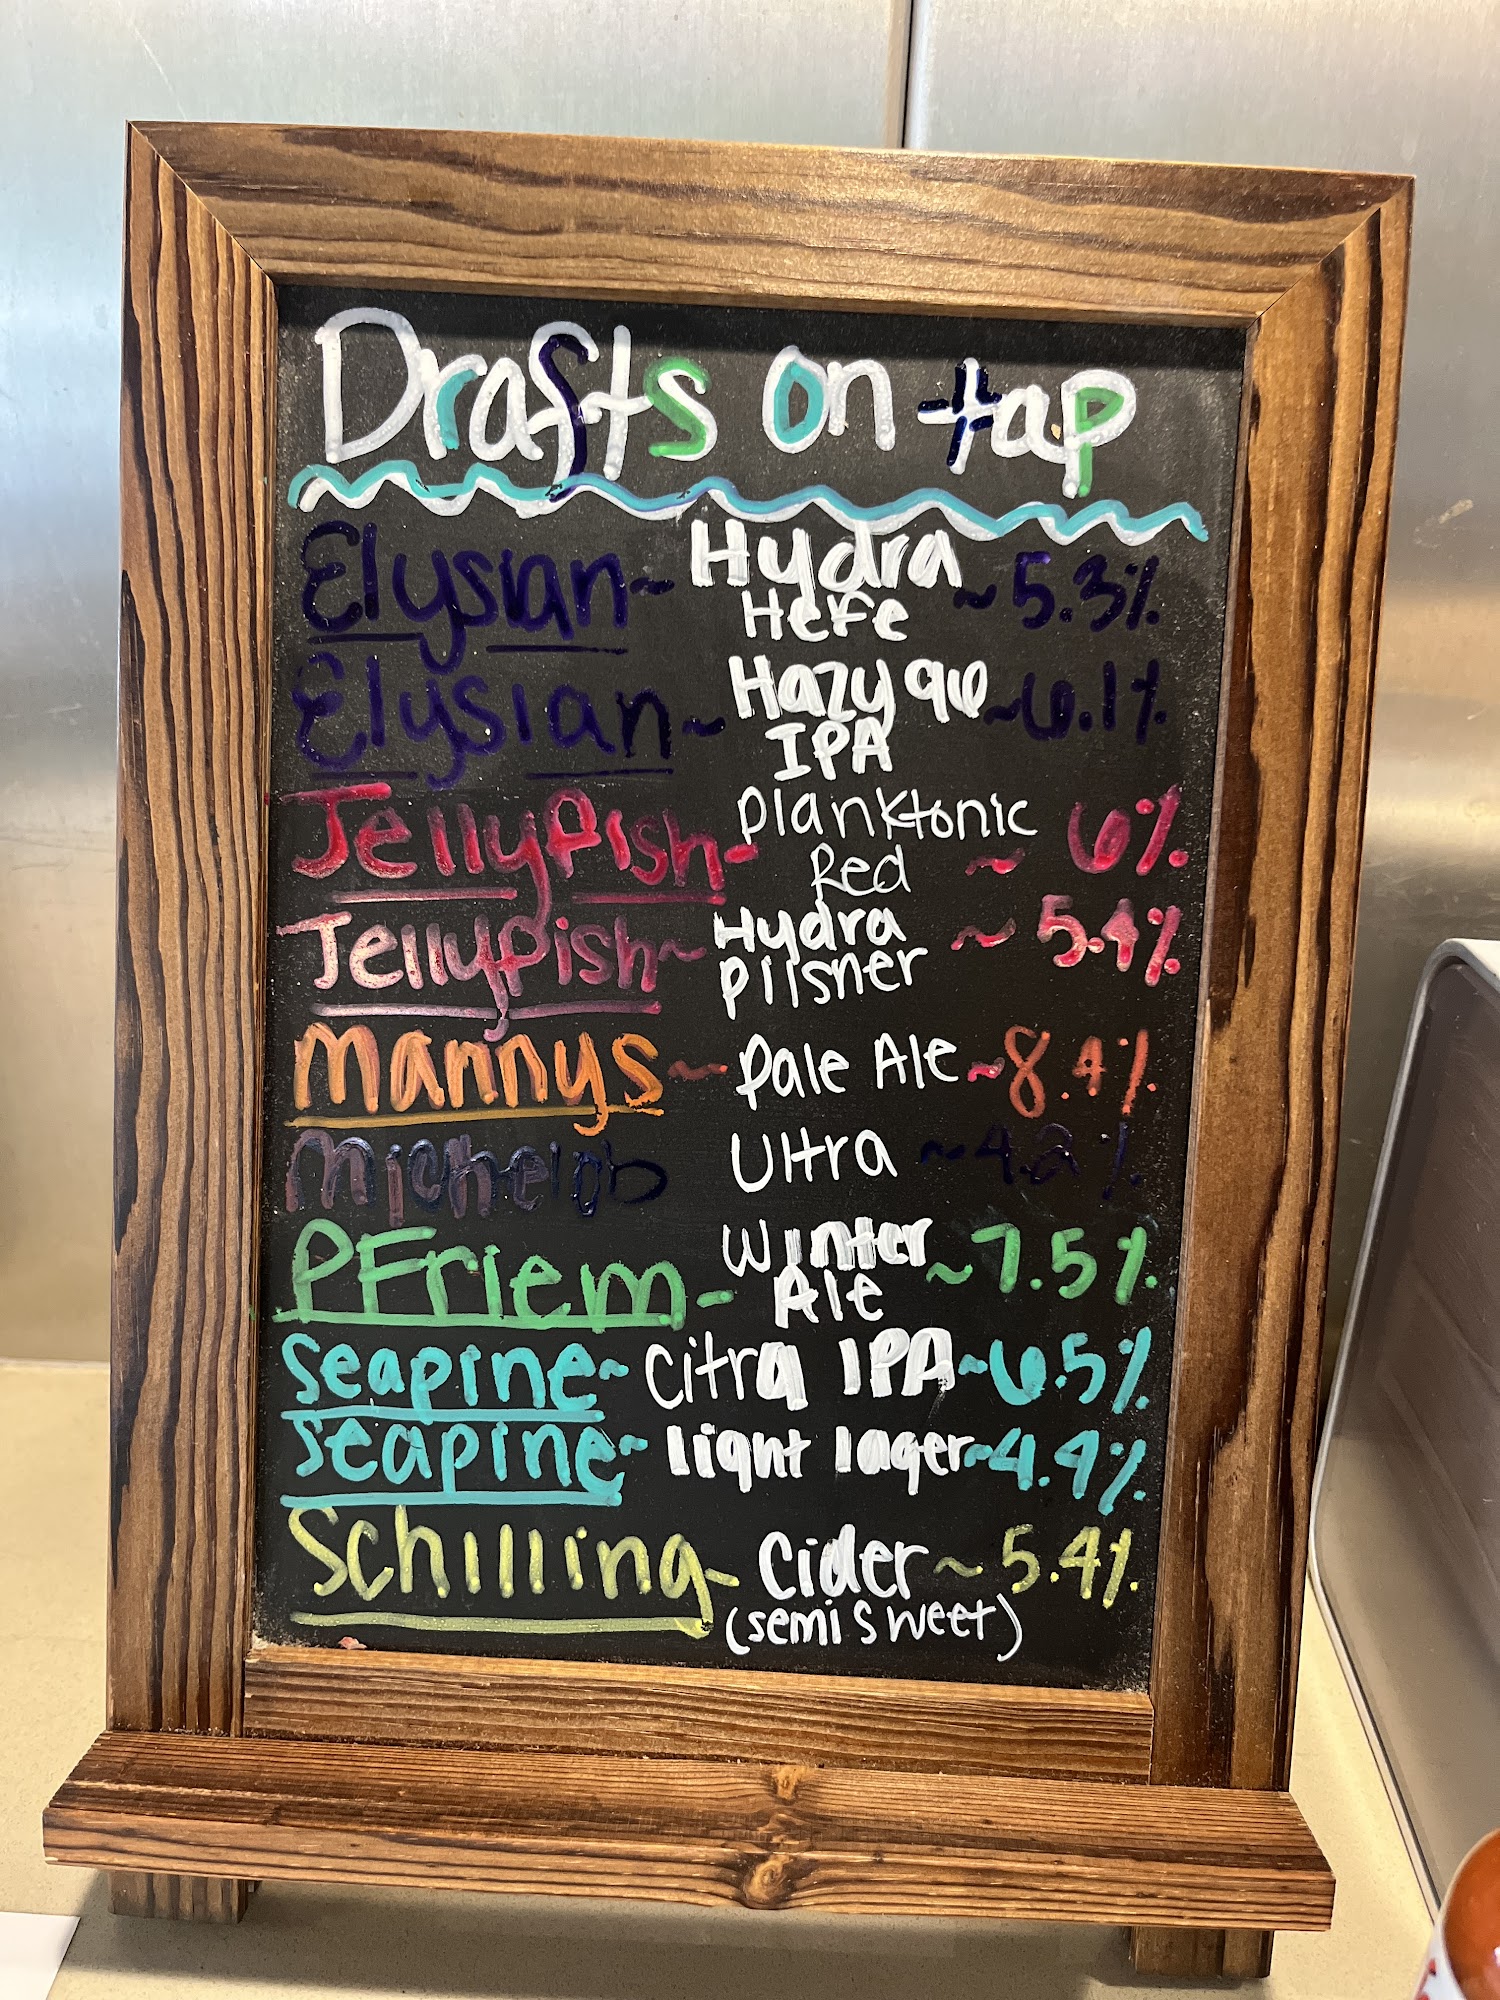 Drafts on tap
Elysian ~ Hydra Hefe ~ 5.3%
Elysian ~ Hazy 96 IPA ~ 6.1%
Jellyfish - Planktonic Red ~ 6%
Jellyfish ~ Hydra Pilsner ~ 5.4%
Mannys ~ Pale Ale ~ 8.4%
Michelob Ultra ~ 4.2%
PFriem - Winter Ale ~ 7.5%
Seapine ~ Citra IPA ~ 6.5%
Seapine ~ light lager ~ 4.4%
Schilling - Cider ~ 5.4%
(semi sweet)